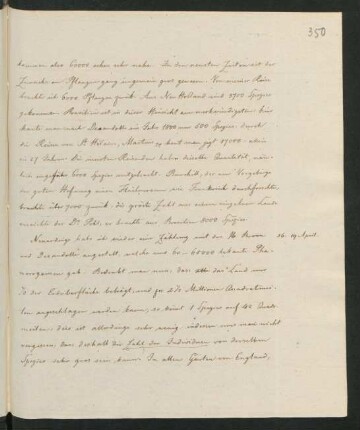 350
kommen also 60000 schon sehr nahe. In den neusten Zeiten ist der
Zuwachs an Pflanzen ganz ungemein gros gewesen. Reise
brachte 6000 Pflanzen zurük. Aus Neu Holland sind Spezies
gekommen. Brasilien ist in dieser Hinsicht am merkwürdigsten
kante man nach Decandolle im Jahr 1800 nur 600 Spezies. durch
die Reisen von St Hilaire, Martius kent man jezt 17000. also
in 27 Jahren. Die meisten Reisenden haben dieselbe Quantität, näm-
lich ungefähr 6000 Spezies mitgebracht. Burchell, der am Vorgebirge
der guten Hofnung einen Flächenraum wie Frankreich durchforschte
brachte über 7000 zurük. die gröste Zahl aus einem einzelnen Lande
der Dr. Pohl, er brachte aus Brasilien 8000 Spezies.
Neuerdings habe ich wieder eine Zählung mit den H. Brown
16. 19 April.
und Decandolle angestellt, welche uns 60000 bekante Pha-
nerogamen gab. Bedenkt man nun, das das Land nur
1/3 der Erdoberfläche beträgt, und zu Millionen Quadratmei-
len angeschlagen werden kann, so kömt 1 Spezies auf Quadr
meilen. dies ist allerdings sehr wenig. indessen mus man nicht
vergessen das deshalb die Zahl der Individuen von derselben
Spezies sehr gros sein kann. In allen Gärten von England,